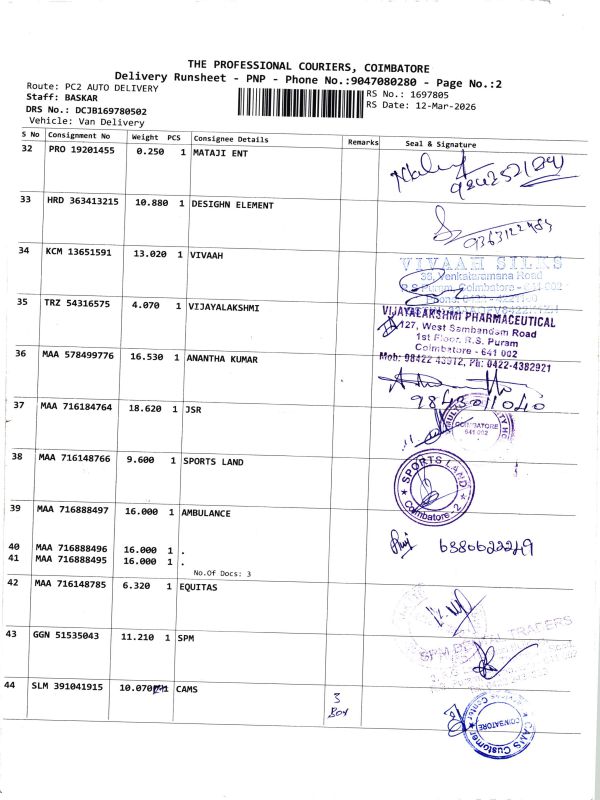 THE PROFESSIONAL COURIERS, COIMBATORE
Delivery Runsheet - PNP - Phone No.:9047080280 - Page No.:2
Route: PC2 AUTO DELIVERY
RS No.: 1697805
Staff: BASKAR
RS Date: 12-Mar-2026
DRS No.: DCJB169780502
Vehicle: Van Delivery
S No Consignment No Weight PCS Consignee Details Remarks Seal & Signature
32 PRO 19201455 0.250 1 MATAJI ENT
33 HRD 363413215 10.880 1 DESIGHN ELEMENT
9363122483
34 KCM 13651591 13.020 1 VIVAAH
VIVAAH SILKS
35, Venkataramana Road
R.S Puram, Coimbatore - 641 002
35 TRZ 54316575 4.070 1 VIJAYALAKSHMI
VIJAYALAKSHMI PHARMACEUTICAL
127, West Sambandam Road
1st Floor, R.S. Puram
Coimbatore - 641 002
Mob: 98422 43912, Ph: 0422-4382921
36 MAA 578499776 16.530 1 ANANTHA KUMAR
9843011040
37 MAA 716184764 18.620 1 JSR
COIMBATORE
641 002
38 MAA 716148766 9.600 1 SPORTS LAND
SPORTS LAND
Coimbatore - 2
39 MAA 716888497 16.000 1 AMBULANCE
6380622249
40 MAA 716888496 16.000 1 .
41 MAA 716888495 16.000 1 .
No.Of Docs: 3
42 MAA 716148785 6.320 1 EQUITAS
43 GGN 51535043 11.210 1 SPM
SPM DENTAL TRADERS
44 SLM 391041915 10.070 1 CAMS
3
Box
CAMS Customer Service Center
COIMBATORE